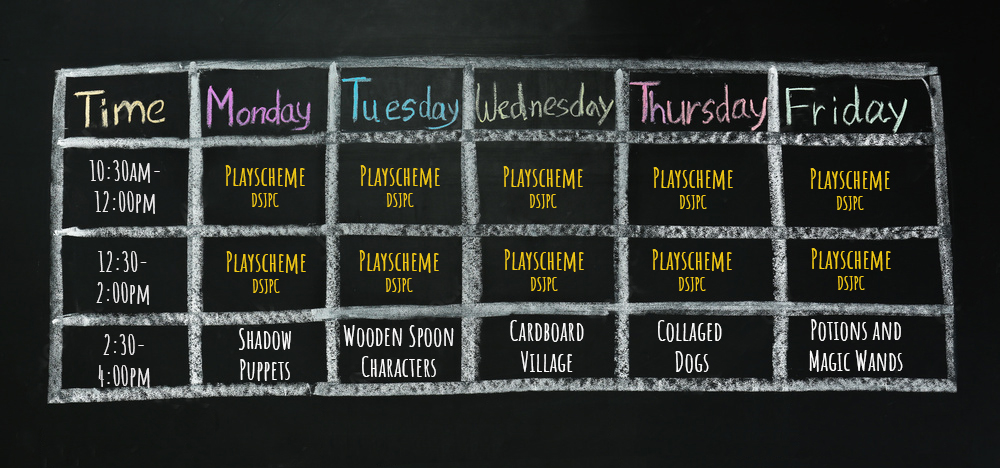 Time Monday Tuesday Wednesday Thursday Friday
10:30AM-
12:00PM
PLAYSCHEME
DSJPC
PLAYSCHEME
DSJPC
PLAYSCHEME
DSJPC
PLAYSCHEME
DSJPC
PLAYSCHEME
DSJPC
12:30-
2:00PM
PLAYSCHEME
DSJPC
PLAYSCHEME
DSJPC
PLAYSCHEME
DSJPC
PLAYSCHEME
DSJPC
PLAYSCHEME
DSJPC
2:30-
4:00PM
SHADOW
PUPPETS
WOODEN SPOON
CHARACTERS
CARDBOARD
VILLAGE
COLLAGED
DOGS
POTIONS AND
MAGIC WANDS